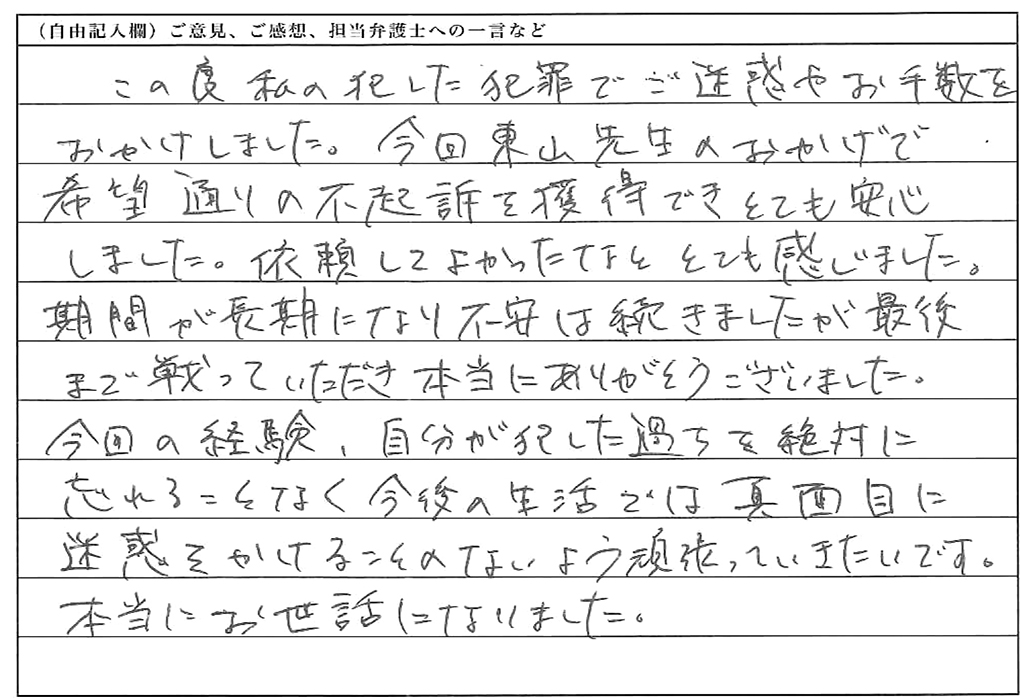 （自由記入欄）ご意見、ご感想、担当弁護士への一言など
この度私の犯した犯罪でご迷惑やお手数を
おかけしました。今回東山先生のおかげで
希望通りの不起訴を獲得できとても安心
しました。依頼してよかったなととても感じました。
期間が長期になり不安は続きましたが最後
まで戦っていただき本当にありがとうございました。
今回の経験、自分が犯した過ちを絶対に
忘れることなく今後の生活では真面目に
迷惑をかけることのないよう頑張っていきたいです。
本当にお世話になりました。